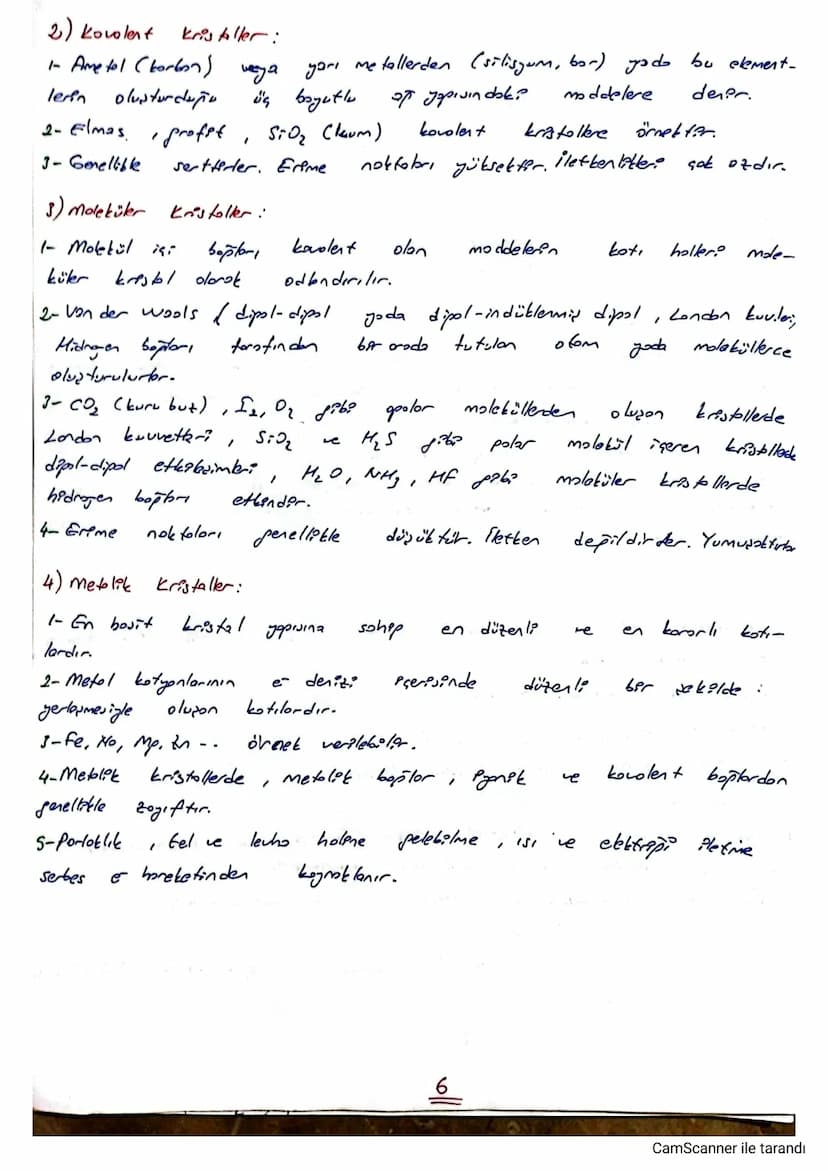 2) Kovalent Kristaller:
1- Ametal (karbon) veya yarı metallerden (silisyum, bor) yada bu element-
lerin oluşturduğu üç boyutlu ağ yapısındaki maddelere denir.
2- Elmas, grafit, SiO₂ (kum) kovalent kristallere örnektir.
3- Genellikle serttirler. Erime noktaları yüksektir. İletkenlikleri çok azdır.
3) Moleküler Kristaller:
1- Molekül içi bağları kovalent olan maddelerin katı halleri mole-
küler kristal olarak adlandırılır.
2- Van der Waals ( dipol-dipol yada dipol-indüklenmiş dipol, London kuvvleri,
Hidrojen bağları tarafından bir arada tutulan atom yada moleküllerce
oluşturulurlar.
3- CO₂ (kuru buz), I₂, O₂ gibi apolar moleküllerden oluşan kristallerde
London kuvvetleri, SiO₂ ve H₂S gibi polar molekül içeren kristallede
dipol-dipol etkileşimleri, H₂O, NH₃, HF gibi moleküler kristallerde
hidrojen bağları etkindir.
4- Erime noktaları genellikle düşüktür. İletken değildirler. Yumuşaktırlar
4) Metalik Kristaller:
1- En basit kristal yapısına sahip en düzenli ve en kararlı katı-
lardır.
2- Metal katyonlarının e⁻ denizi içerisinde düzenli bir şekilde
yerleşmesiyle oluşan katılardır.
3- Fe, Na, Mg, Zn -- örnek verilebilir.
4- Metalik kristallerde, metalik bağlar, iyonik ve kovalent bağlardan
genellikle zayıftır.
5- Parlaklık, tel ve levha haline gelebilme, ısı ve elektriği iletme
serbes e⁻ hareketinden kaynaklanır.
6
CamScanner ile tarandı